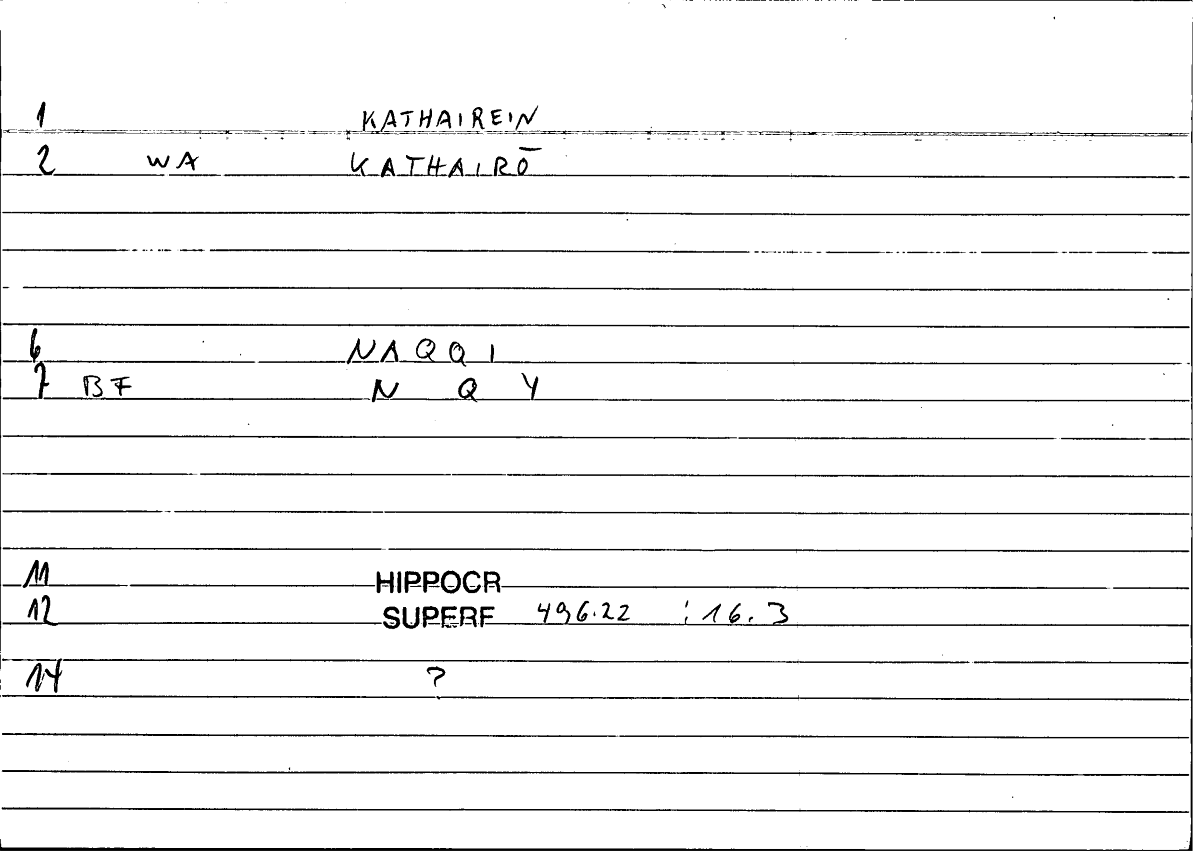 1 KATHAIREIN
2 WA KATHAIRŌ
6 NAQQI
7 BF N Q Y
11 HIPPOCR
12 SUPERF 496.22 : 16.3
14 ?